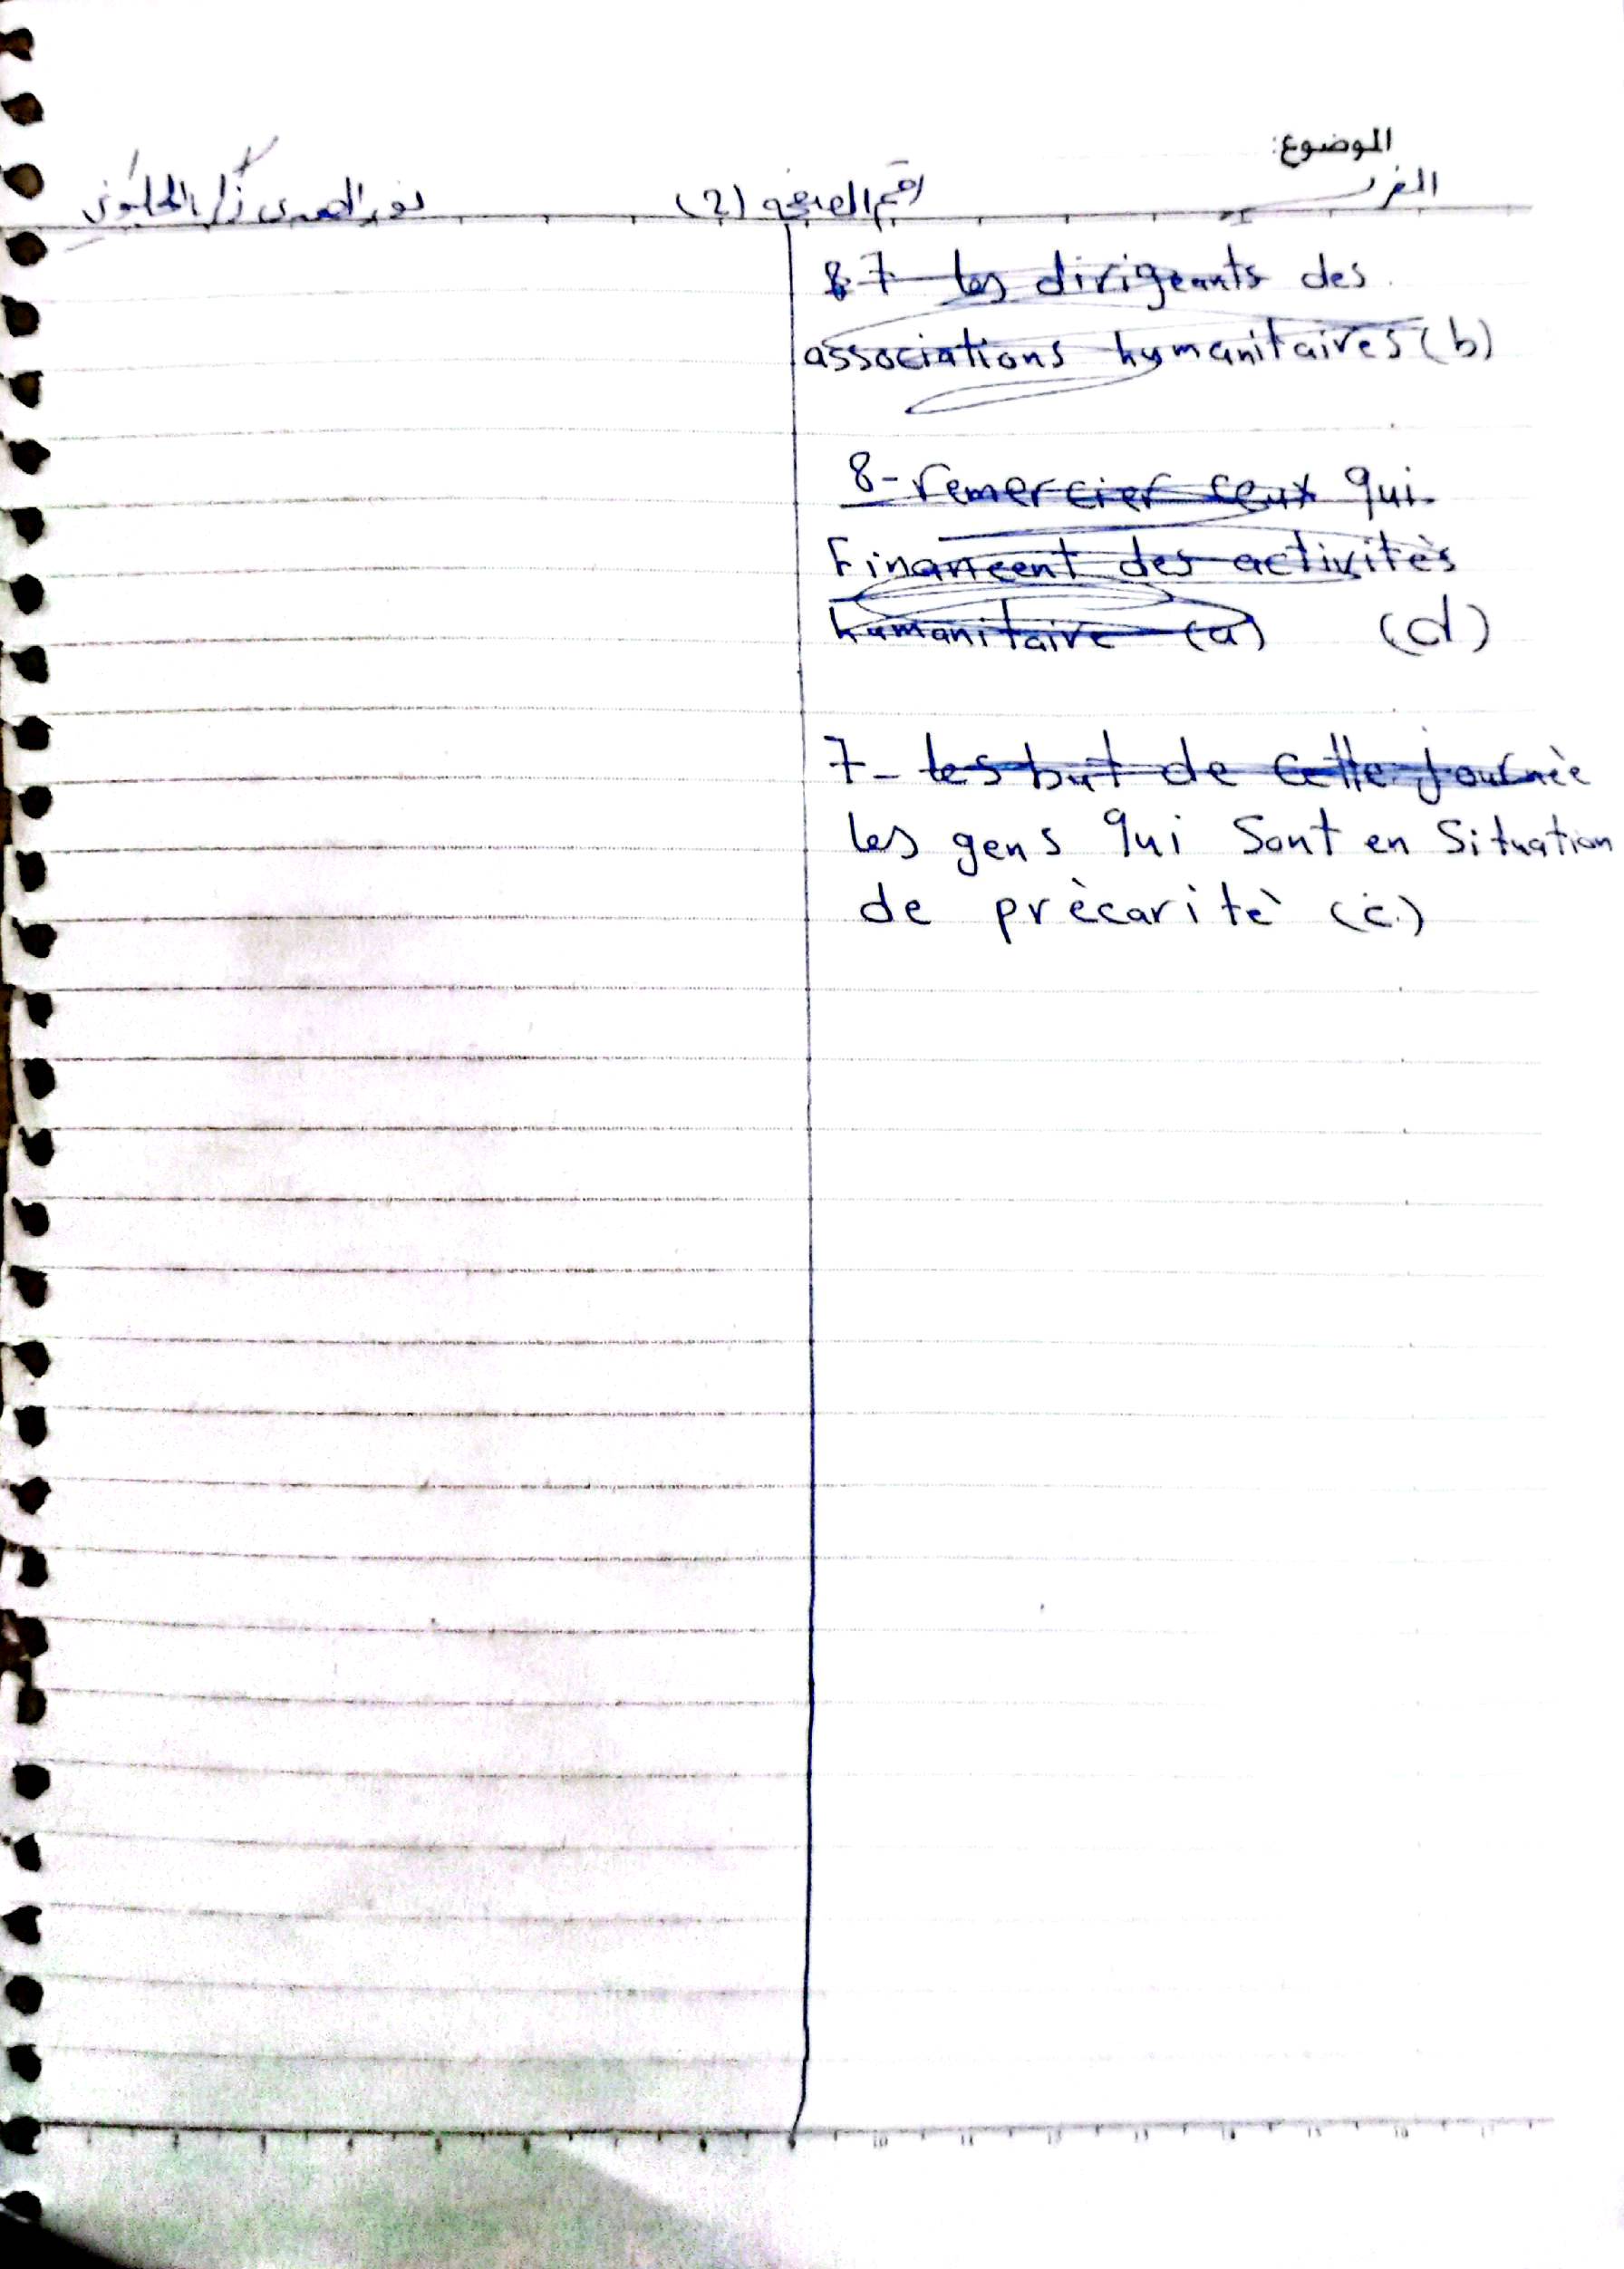 الموضوع:
رقم الصفحة (2)
8 7 les dirigeants des
associations humanitaires (b)
8- remercier ceux qui
Financent des activitès
humanitaire (a) (d)
7- les but de cette journèe
les gens qui Sont en Situation
de prècaritè (c)
10 11 12 13 14 15 16 17